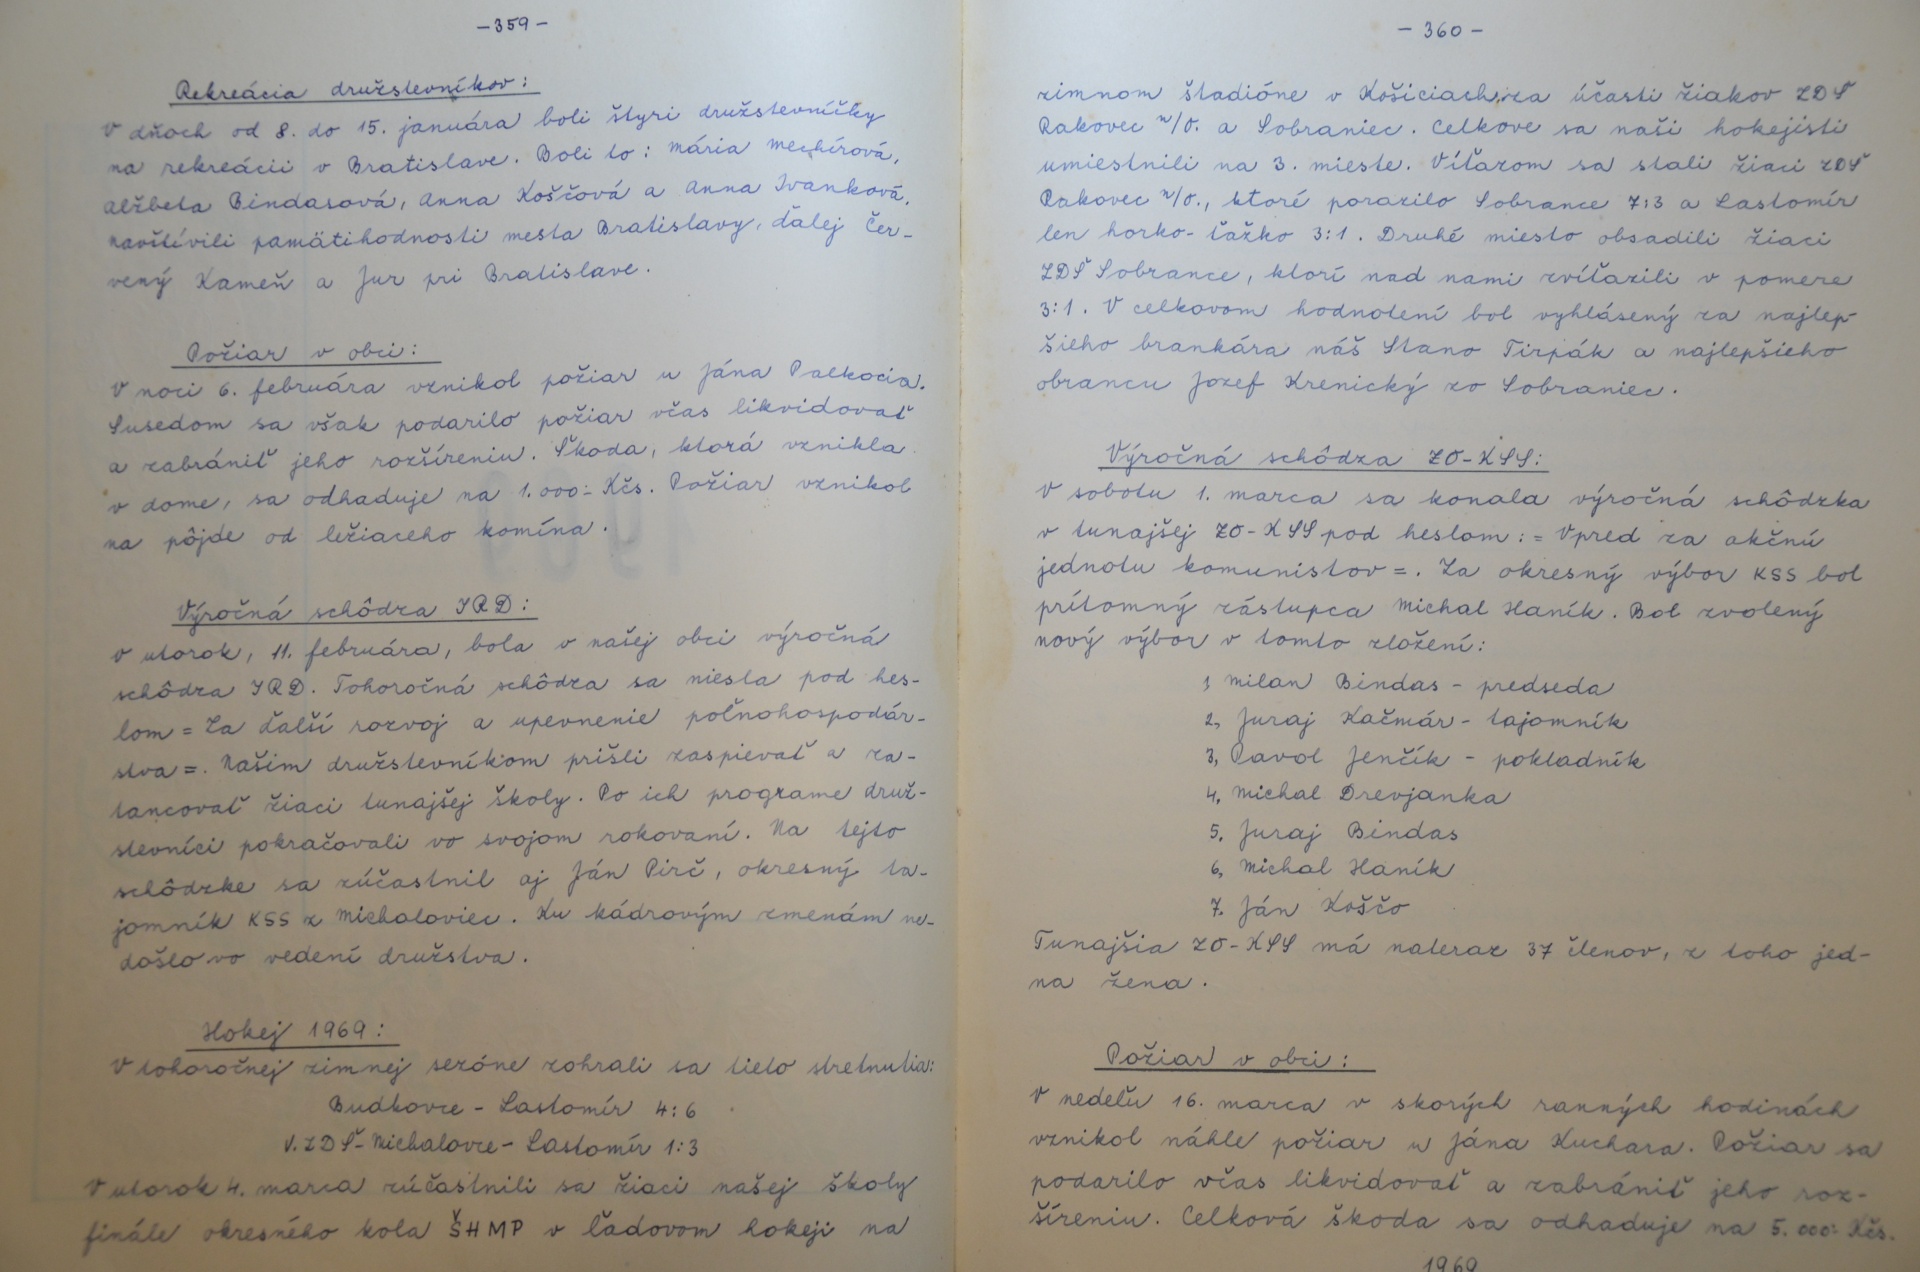 -359-
Rekreácia družstevníkov:
V dňoch od 8. do 15. januára boli štyri družstevníčky
na rekreácii v Bratislave. Boli to: Mária Mechírová,
Alžbeta Bindasová, Anna Koščová a Anna Ivanková.
Navštívili pamätihodnosti mesta Bratislavy, ďalej Čer-
vený Kameň a Jur pri Bratislave.
Požiar v obci:
V noci 6. februára vznikol požiar u Jána Palkocia.
Susedom sa však podarilo požiar včas likvidovať
a zabrániť jeho rozšíreniu. Škoda, ktorá vznikla
v dome, sa odhaduje na 1.000.- Kčs. Požiar vznikol
na pôjde od ležiaceho komína.
Výročná schôdza JRD:
V utorok, 11. februára, bola v našej obci výročná
schôdza JRD. Tohoročná schôdza sa niesla pod hes-
lom = Za ďalší rozvoj a upevnenie poľnohospodár-
stva =. Našim družstevníkom prišli zaspievať a za-
tancovať žiaci tunajšej školy. Po ich programe druž-
stevníci pokračovali vo svojom rokovaní. Na tejto
schôdzke sa zúčastnil aj Ján Pirč, okresný ta-
jomník KSS z Michaloviec. Ku kádrovým zmenám ne-
došlo vo vedení družstva.
Hokej 1969:
V tohoročnej zimnej sezóne zohrali sa tieto stretnutia:
Budkovce - Lastomír 4:6
V. ZDŠ - Michalovce - Lastomír 1:3
V utorok 4. marca zúčastnili sa žiaci našej školy
finále okresného kola ŠHMP v ľadovom hokeji na
-360-
zimnom štadióne v Košiciach za účasti žiakov ZDŠ
Rakovec n/O. a Sobraniec. Celkove sa naši hokejisti
umiestnili na 3. mieste. Víťazom sa stali žiaci ZDŠ
Rakovec n/O., ktoré porazilo Sobrance 7:3 a Lastomír
len horko-ťažko 3:1. Druhé miesto obsadili žiaci
ZDŠ Sobrance, ktorí nad nami zvíťazili v pomere
3:1. V celkovom hodnotení bol vyhlásený za najlep-
šieho brankára náš Stano Tirpák a najlepšieho
obrancu Jozef Krenický zo Sobraniec.
Výročná schôdza ZO-KSS:
V sobotu 1. marca sa konala výročná schôdzka
v tunajšej ZO-KSS pod heslom: = Vpred za akčnú
jednotu komunistov =. Za okresný výbor KSS bol
prítomný zástupca Michal Haník. Bol zvolený
nový výbor v tomto zložení:
1, Milan Bindas - predseda
2, Juraj Kačmár - tajomník
3, Pavol Jenčík - pokladník
4, Michal Drevjanka
5. Juraj Bindas
6, Michal Haník
7. Ján Koščo
Tunajšia ZO-KSS má nateraz 37 členov, z toho jed-
na žena.
Požiar v obci:
V nedeľu 16. marca v skorých ranných hodinách
vznikol náhle požiar u Jána Kuchara. Požiar sa
podarilo včas likvidovať a zabrániť jeho roz-
šíreniu. Celková škoda sa odhaduje na 5.000.- Kčs.
1969